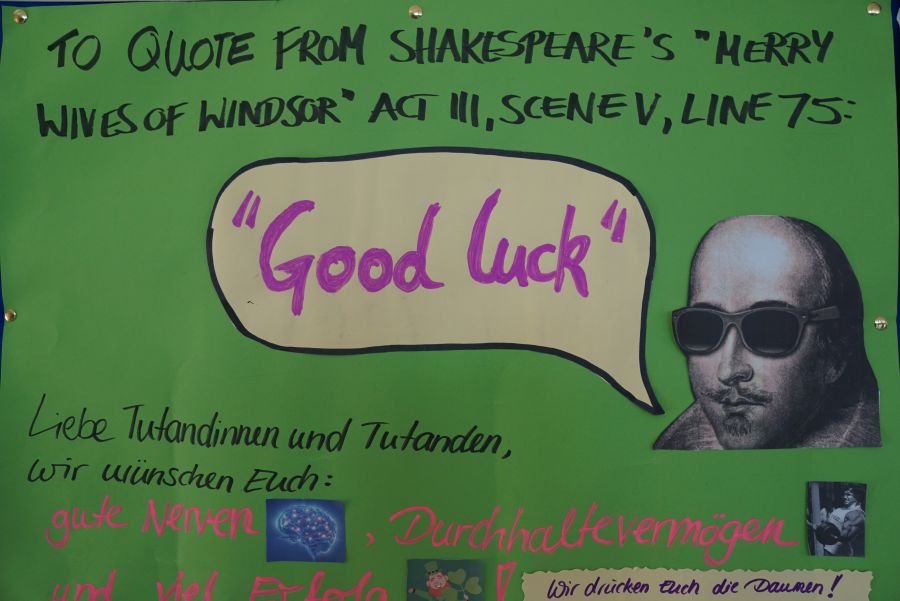 TO QUOTE FROM SHAKESPEARE'S "MERRY
WIVES OF WINDSOR" ACT III, SCENE V, LINE 75:
"Good luck"
Liebe Tutandinnen und Tutanden,
wir wünschen Euch:
gute Nerven , Durchhaltevermögen
und viel Erfolg !
Wir drücken Euch die Daumen!